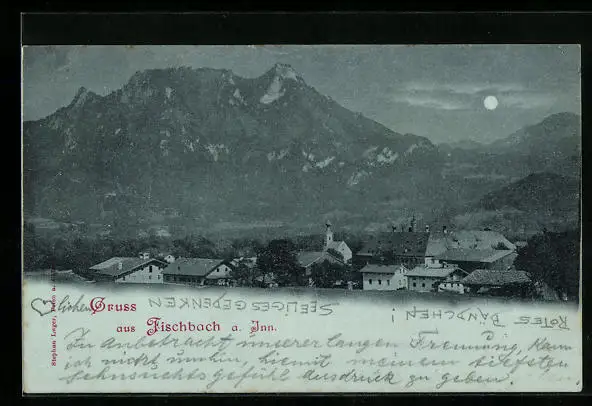 ♡lichen Gruss
aus Fischbach a. Inn.
SEELIGES GEDENKEN
SEELIGES GEDENKEN
!
ROTES BÄNDCHEN
Stephan Leger, 
In anbetracht unserer langen Trennung, kann
ich nicht umhin, hiemit meinem tiefsten
Sehnsuchtsgefühl Ausdruck zu geben.